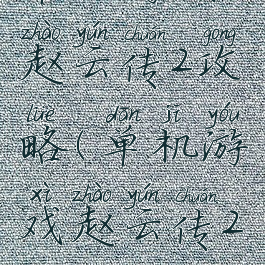 zhào yún chuán gōng
赵云传2攻
lüè dān jī yóu
略(单机游
xì zhào yún chuán
戏赵云传2